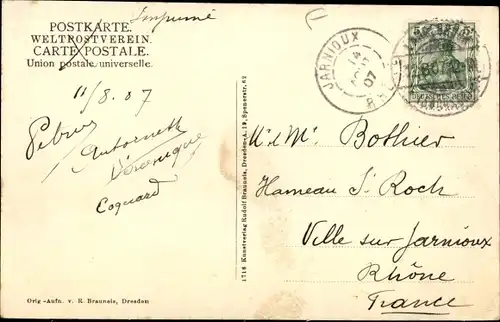 POSTKARTE.
Imprimé
WELTPOSTVEREIN.
CARTE POSTALE.
Union postale universelle.
11/8.07
Antoinette
Véronique
Coquard
Orig-Aufn. v. R. Brauneis, Dresden
1716 Kunstverlag Rudolf Brauneis, Dresden-A. 19, Spenerstr. 62
JARNIOUX
14
07
DEUTSCHES REICH
M. & Me. Bothier
Hameau St. Roch
Ville sur Jarnioux
Rhône
France